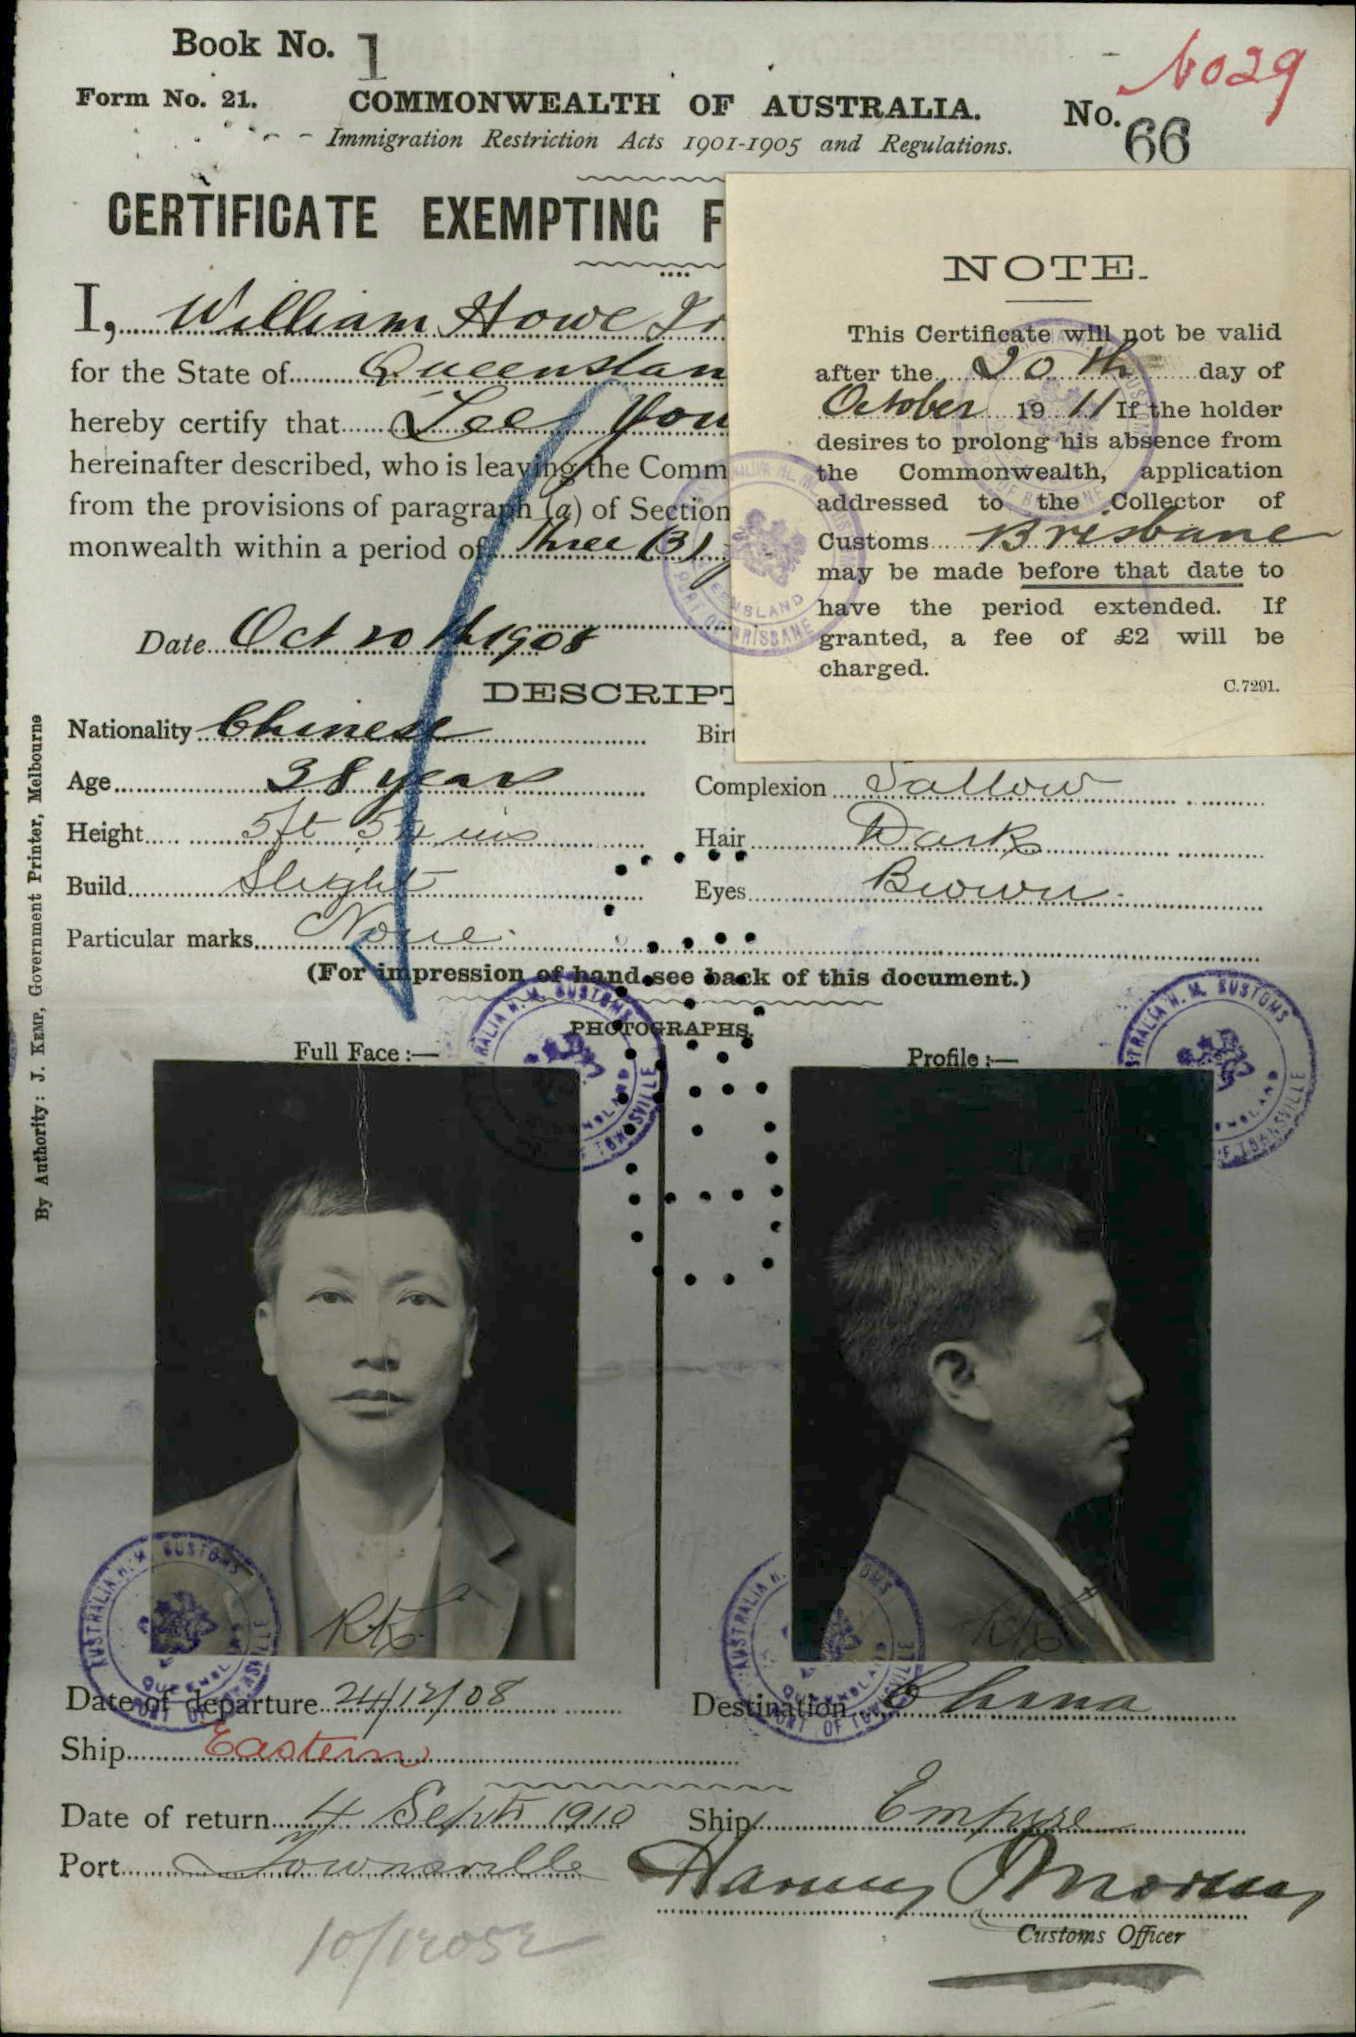 Book No. 1
No29
Form No. 21.
COMMONWEALTH OF AUSTRALIA.
No. 66
Immigration Restriction Acts 1901-1905 and Regulations.
CERTIFICATE EXEMPTING F
I, William Howe Ir
for the State of Queenslan
hereby certify that Lee You
hereinafter described, who is leaving the Comm
from the provisions of paragraph (a) of Section
monwealth within a period of Three (3)
Date Oct 20th 1908
NOTE.
This Certificate will not be valid
after the 20th day of
October 1911 If the holder
desires to prolong his absence from
the Commonwealth, application
addressed to the Collector of
Customs Brisbane
may be made before that date to
have the period extended. If
granted, a fee of £2 will be
charged.
C.7291.
DESCRIPT
Nationality Chinese
Birt
Age 38 years
Complexion Sallow
Height 5ft 5¼ ins
Hair Dark
Build Slight
Eyes Brown
Particular marks None
(For impression of hand see back of this document.)
PHOTOGRAPHS.
Full Face :—
Profile :—
By Authority: J. KEMP, Government Printer, Melbourne
AUSTRALIA H. M. CUSTOMS
QUEENSLAND
PORT OF TOWNSVILLE
PORT OF BRISBANE
Date of departure 24/12/08
Destination China
Ship Eastern
Date of return 4 Septr 1910
Ship Empire
Port Townsville
Customs Officer
10/12052